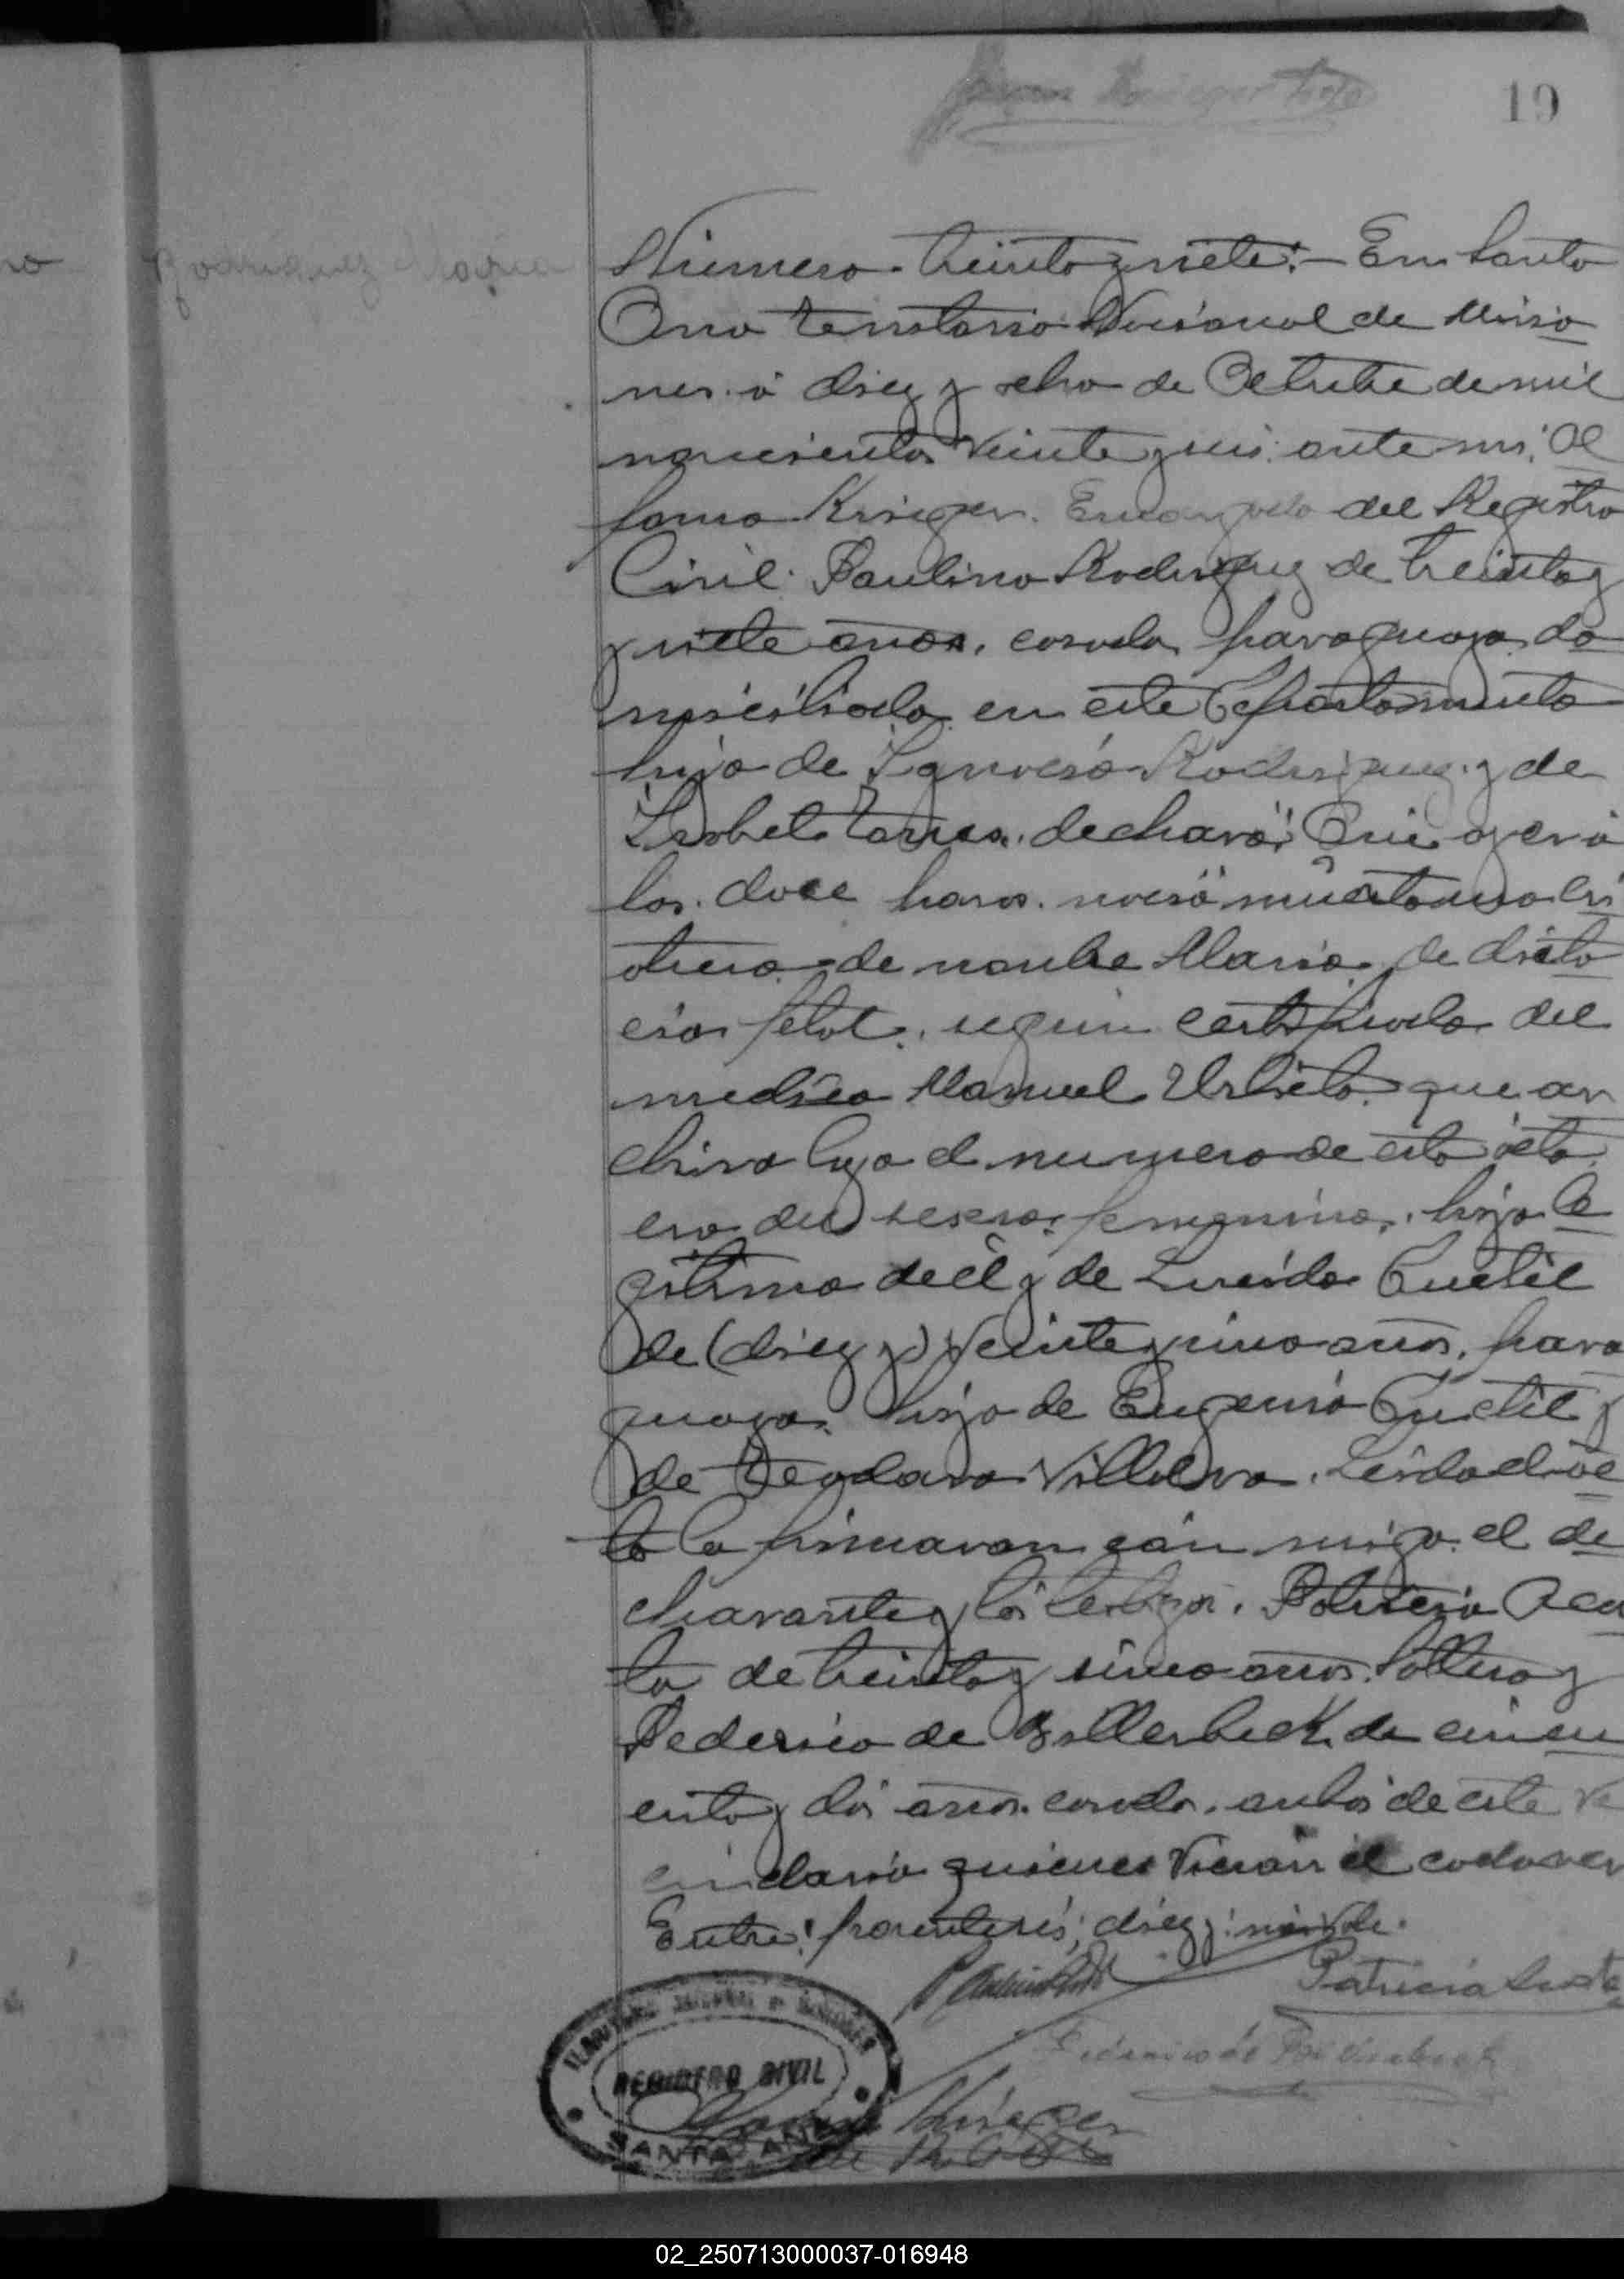 19
Rodriguez Maria
Numero treinta y siete:- En Santa
Ana territorio Nacional de Misio
nes. á diez y ocho de Octubre de mil
novecientos veinte y seis: ante mi, Al
fonso Krieger. Encargado del Registro
Civil: Paulino Rodriguez de treinta y
y siete años, casado, paraguayo, do
misiliado en este Departamento
hijo de Ignacio Rodriguez y de
Isabel Torres, declaró: Que ayer á
las doce horas. nació muerta una cri
atura de nombre Maria, de disto
cia fetal, segun certificado del
medico Manuel Urbieta, que ar
chivo bajo el numero de esta acta
era del sexso femenino, hija le
gitima de él y de Lucida
de (diez y) veinte y cinco años, para
guaya. hija de Eugenio y
de Teodora Villalva. Leida el ac
ta la firmaron con migo. el de
clarante y los testigos. Patricio Acos
ta de treinta y cinco años. soltero y
Federico de Bollerbeck, de cincu
enta y dos años. casado. anbos de este ve
cindario quienes vieron el cadaver
Entre: parentesis; diez y: no vale.
Patricio Acosta
Federico de
Krieger
TERRITORIO NACIONAL DE MISIONES
REGISTRO CIVIL
SANTA ANA
02_250713000037-016948